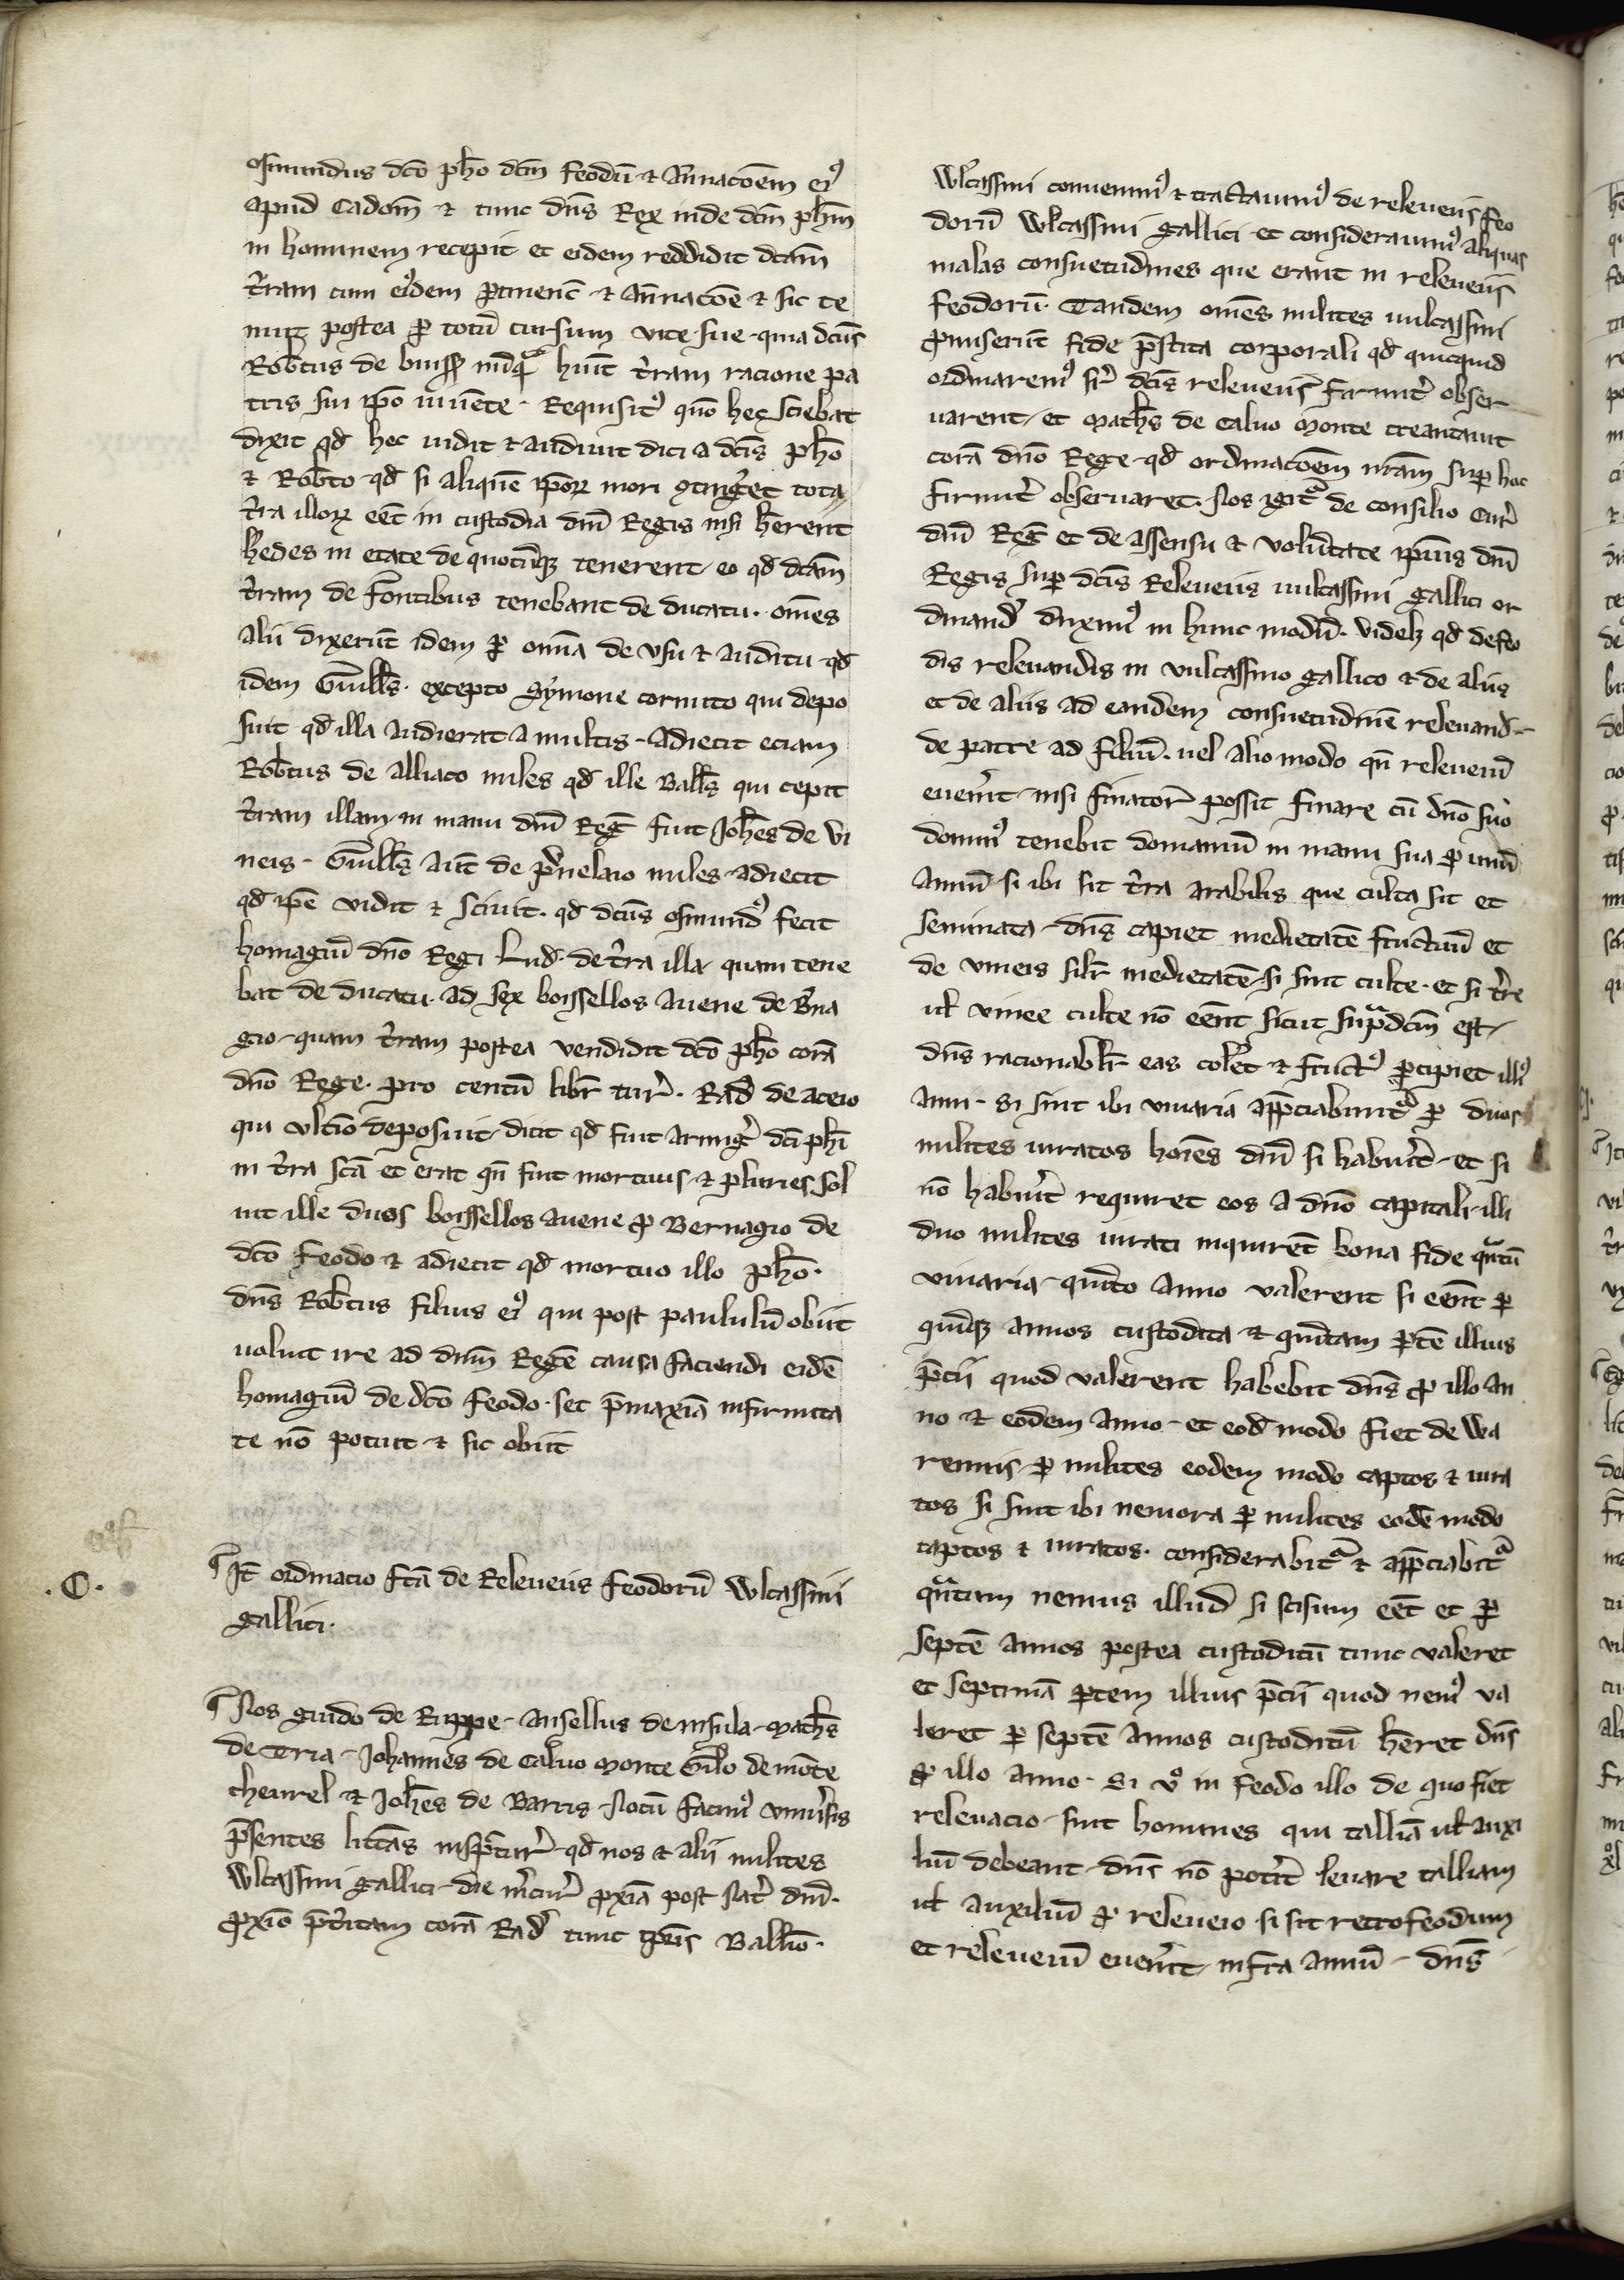 osmundus dc̄o ph̄o dc̄m feodū ⁊ Aūnacōem eiꝰ
Apud Cadom̄ ⁊ tunc dn̄s Rex inde dc̄m ph̄m
in hominem recepit et eidem reddidit dcām
t̄ram cum eiꝰdem ꝑtinenc̄ ⁊ Aūnacōe ⁊ sic te
nuit postea ꝑ totū cursum vite sue - quia dcūs
Rob̄tus de buiss̄ nūqᵃ huit t̄ram racione pa
tris sui ip̄o viuēte - Requisitꝰ quō hec sciebat
dixit qd̄ hec uidit ⁊ audiuit dici a dc̄is ph̄o
⁊ Rob̄to - qd̄ si aliquē ip̄oꝝ mori ꝯting̓et tota
t̄ra illoꝝ eēt in custodia dn̄i Regis nisi h̄erent
h̄edes in etate de quocūqꝫ tenerent - eo qd̄ dcām
t̄ram de fontibus tenebant de ducatu . om̄es
alii dixerūt idem ꝑ om̄ia de visu ⁊ auditu - qd̄
idem Guill̄s . excepto Symone cornuto qui depo
suit qd̄ illa audierat a multis - adiecit eciam
Rob̄tus de alliaco miles qd̄ ille Ball̄s qui cepit
t̄ram illam in manu dn̄i Reḡ fuit Joh̄es de vi
neis - Guill̄s aūt de p̓nelaio miles - adiecit
qd̄ ip̄e vidit ⁊ sciuit . qd̄ dcūs osmundꝰ fecit
homagiū dn̄o Regi Lud̄ . de t̄ra illa quam tene
bat de ducatu . ad sex boissellos auene de B̓na
gio - quam t̄ram postea vendidit dc̄o ph̄o corā
dn̄o Rege . pro centū libr̄ tur̄ . Rad̄ de aceio
qui vltīo deposuit - dicit qd̄ fuit armig̓ dc̄i ph̄i
in t̄ra sc̄a et erat qn̄ fuit mortuus - ⁊ pluries sol
uit ille duos boissellos auene ꝓ Bernagio de
dc̄o feodo ⁊ adiecit qd̄ mortuo illo ph̄o .
dn̄s Rob̄tus filius eiꝰ qui post paululū obiit
uoluit ire ad dn̄m Regē causa faciendi eidē
homagiū de dc̄o feodo . set p̄maxīa infirmita
te nō potuit ⁊ sic obiit
. C .
It̄ ordinacio fcā de Releueiis feodorū Wlcassini
gallici .
Nos guido de Ruppe - Ansellus de insula - Math̄s
de Tria - Johannes de Caluo monte Guilo de mōte
cheurel ⁊ Joh̄es de Barris - Notū facimꝰ vniu̓sis
p̄sentes litt̄as inspc̄tur̄ - qd̄ nos ⁊ alii milites
Wlcassini gallici - die m̓cur̄ ꝓxīa post Nat̄ dn̄i .
ꝓxīo p̄t̓itam corā Rad̄ tunc tp̄ris Ballīo .
Wlcassini conuenimꝰ ⁊ tractauimꝰ de releueiis feo
dorū Wlcassini gallici et considerauimꝰ aliquas
malas consuetudines que erant in releueiis
feodorū . Tandem om̄es milites uulcassini
ꝓmiserūt fide p̄stita corporali qd̄ quicquid
ordinaremꝰ sup̄ dc̄is releueiis firmit̓ obser
uarent - et math̄s de caluo monte creantauit
corā dn̄o Rege - qd̄ ordinacōem nr̄am suꝑ hoc
firmit̓ obseruaret . Nos igitᵃ de consilio Cur̄
dn̄i Reḡ et de assensu ⁊ volūtate ip̄ius dn̄i
Regis suꝑ dc̄is Releueiis uulcassini gallici or
dinand̄ duximꝰ in hunc modū . videlꝫ qd̄ de feo
dis releuandis in vulcassino gallico ⁊ de aliis
et de aliis ad eandem consuetudinē releuand̄ -
de patre ad filiū . uel alio modo qn̄ releueiū
euen̓it - nisi finator̄ possit finare cū dn̄o suo
dominꝰ tenebit domaniū in manu sua ꝑ unū
annū - si ibi sit t̄ra arabilis que culta sit et
seminata - dn̄s capiet medietatē fructuū et
de vineis silr̄ medietatē - si sint culte . et si t̄re
ul̄ vinee culte nō eēnt sicut sup̄dc̄m est -
dn̄s racionabilr̄ eas colet̓ ⁊ fructꝰ ꝑcipiet illiꝰ
anni - Si sint ibi viuaria app̄ciabuntᵃ ꝑ duos
milites iuratos hoīes dn̄i si habu̓it - et si
nō habu̓it requiret eos a dn̄o capitali - illi
duo milites iurati inquirēt bona fide qᵃntū
viuaria - quīto anno valerent si eēnt ꝑ
quīqꝫ annos custodita ⁊ quītam ꝑtē illius
p̄cii quod valerent habebit dn̄s ꝓ illo an
no ⁊ eodem anno - et eod̄ modo fiet de Wa
rennis - ꝑ milites eodem modo captos ⁊ iura
tos si sint ibi nemora ꝑ milites eodē modo
captos ⁊ iuratos . considerabitᵃ ⁊ app̄ciabitᵃ
qᵃntum nemus illud si scisum eēt et ꝑ
septē annos postea custoditū tunc valeret
et septimā ꝑtem illius p̄cii quod nemꝰ va
leret ꝑ septē annos custoditū h̄eret dn̄s
ꝓ illo anno - Si v̊ in feodo illo de quo fiet
releuacio - sint homines qui talliā ul̄ auxi
liū debeant - dn̄s nō pot̓it leuare talliam
ul̄ auxiliū ꝓ releueio si sit retrofeodum
et releueiū euen̓it - infra annū - dn̄s